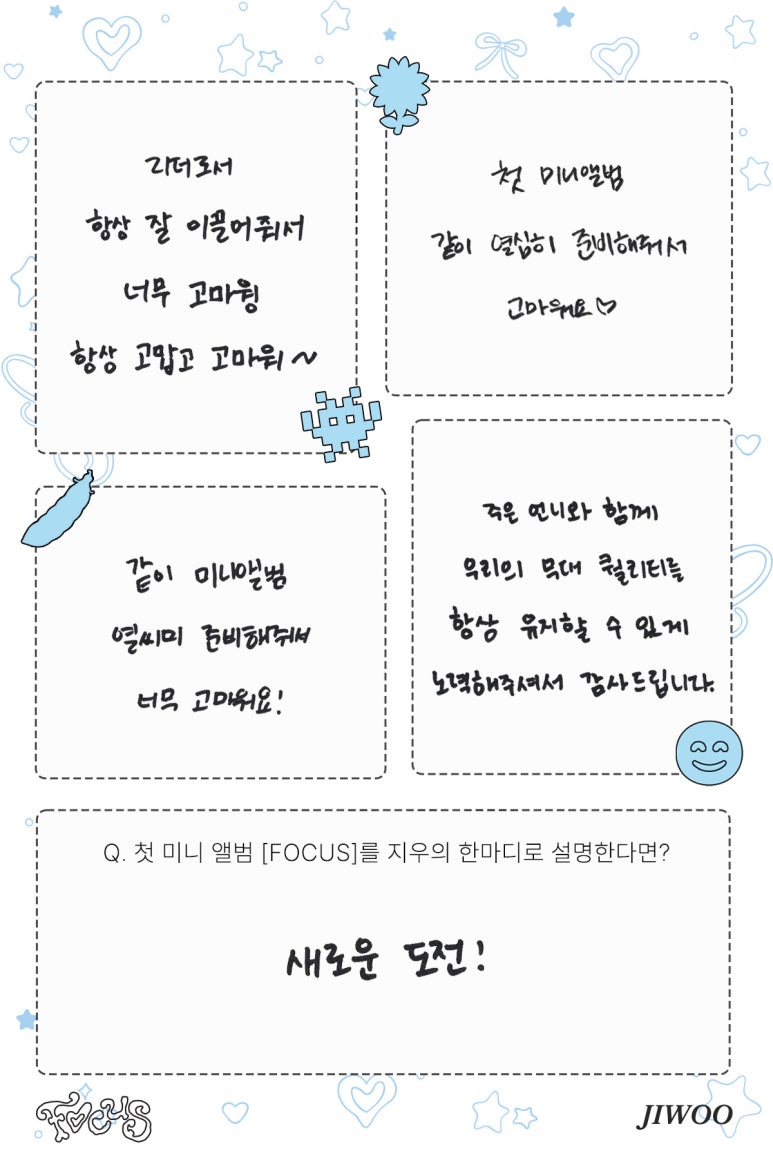 리더로서
항상 잘 이끌어줘서
너무 고마웡
항상 고맙고 고마워~
첫 미니앨범
같이 열심히 준비해줘서
고마워요♡
같이 미니앨범
열씨미 준비해줘서
너무 고마워요!
주은 언니와 함께
우리의 무대 퀄리티를
항상 유지할 수 있게
노력해주셔서 감사드립니다.
Q. 첫 미니 앨범 [FOCUS]를 지우의 한마디로 설명한다면?
새로운 도전!
FOCUS
JIWOO